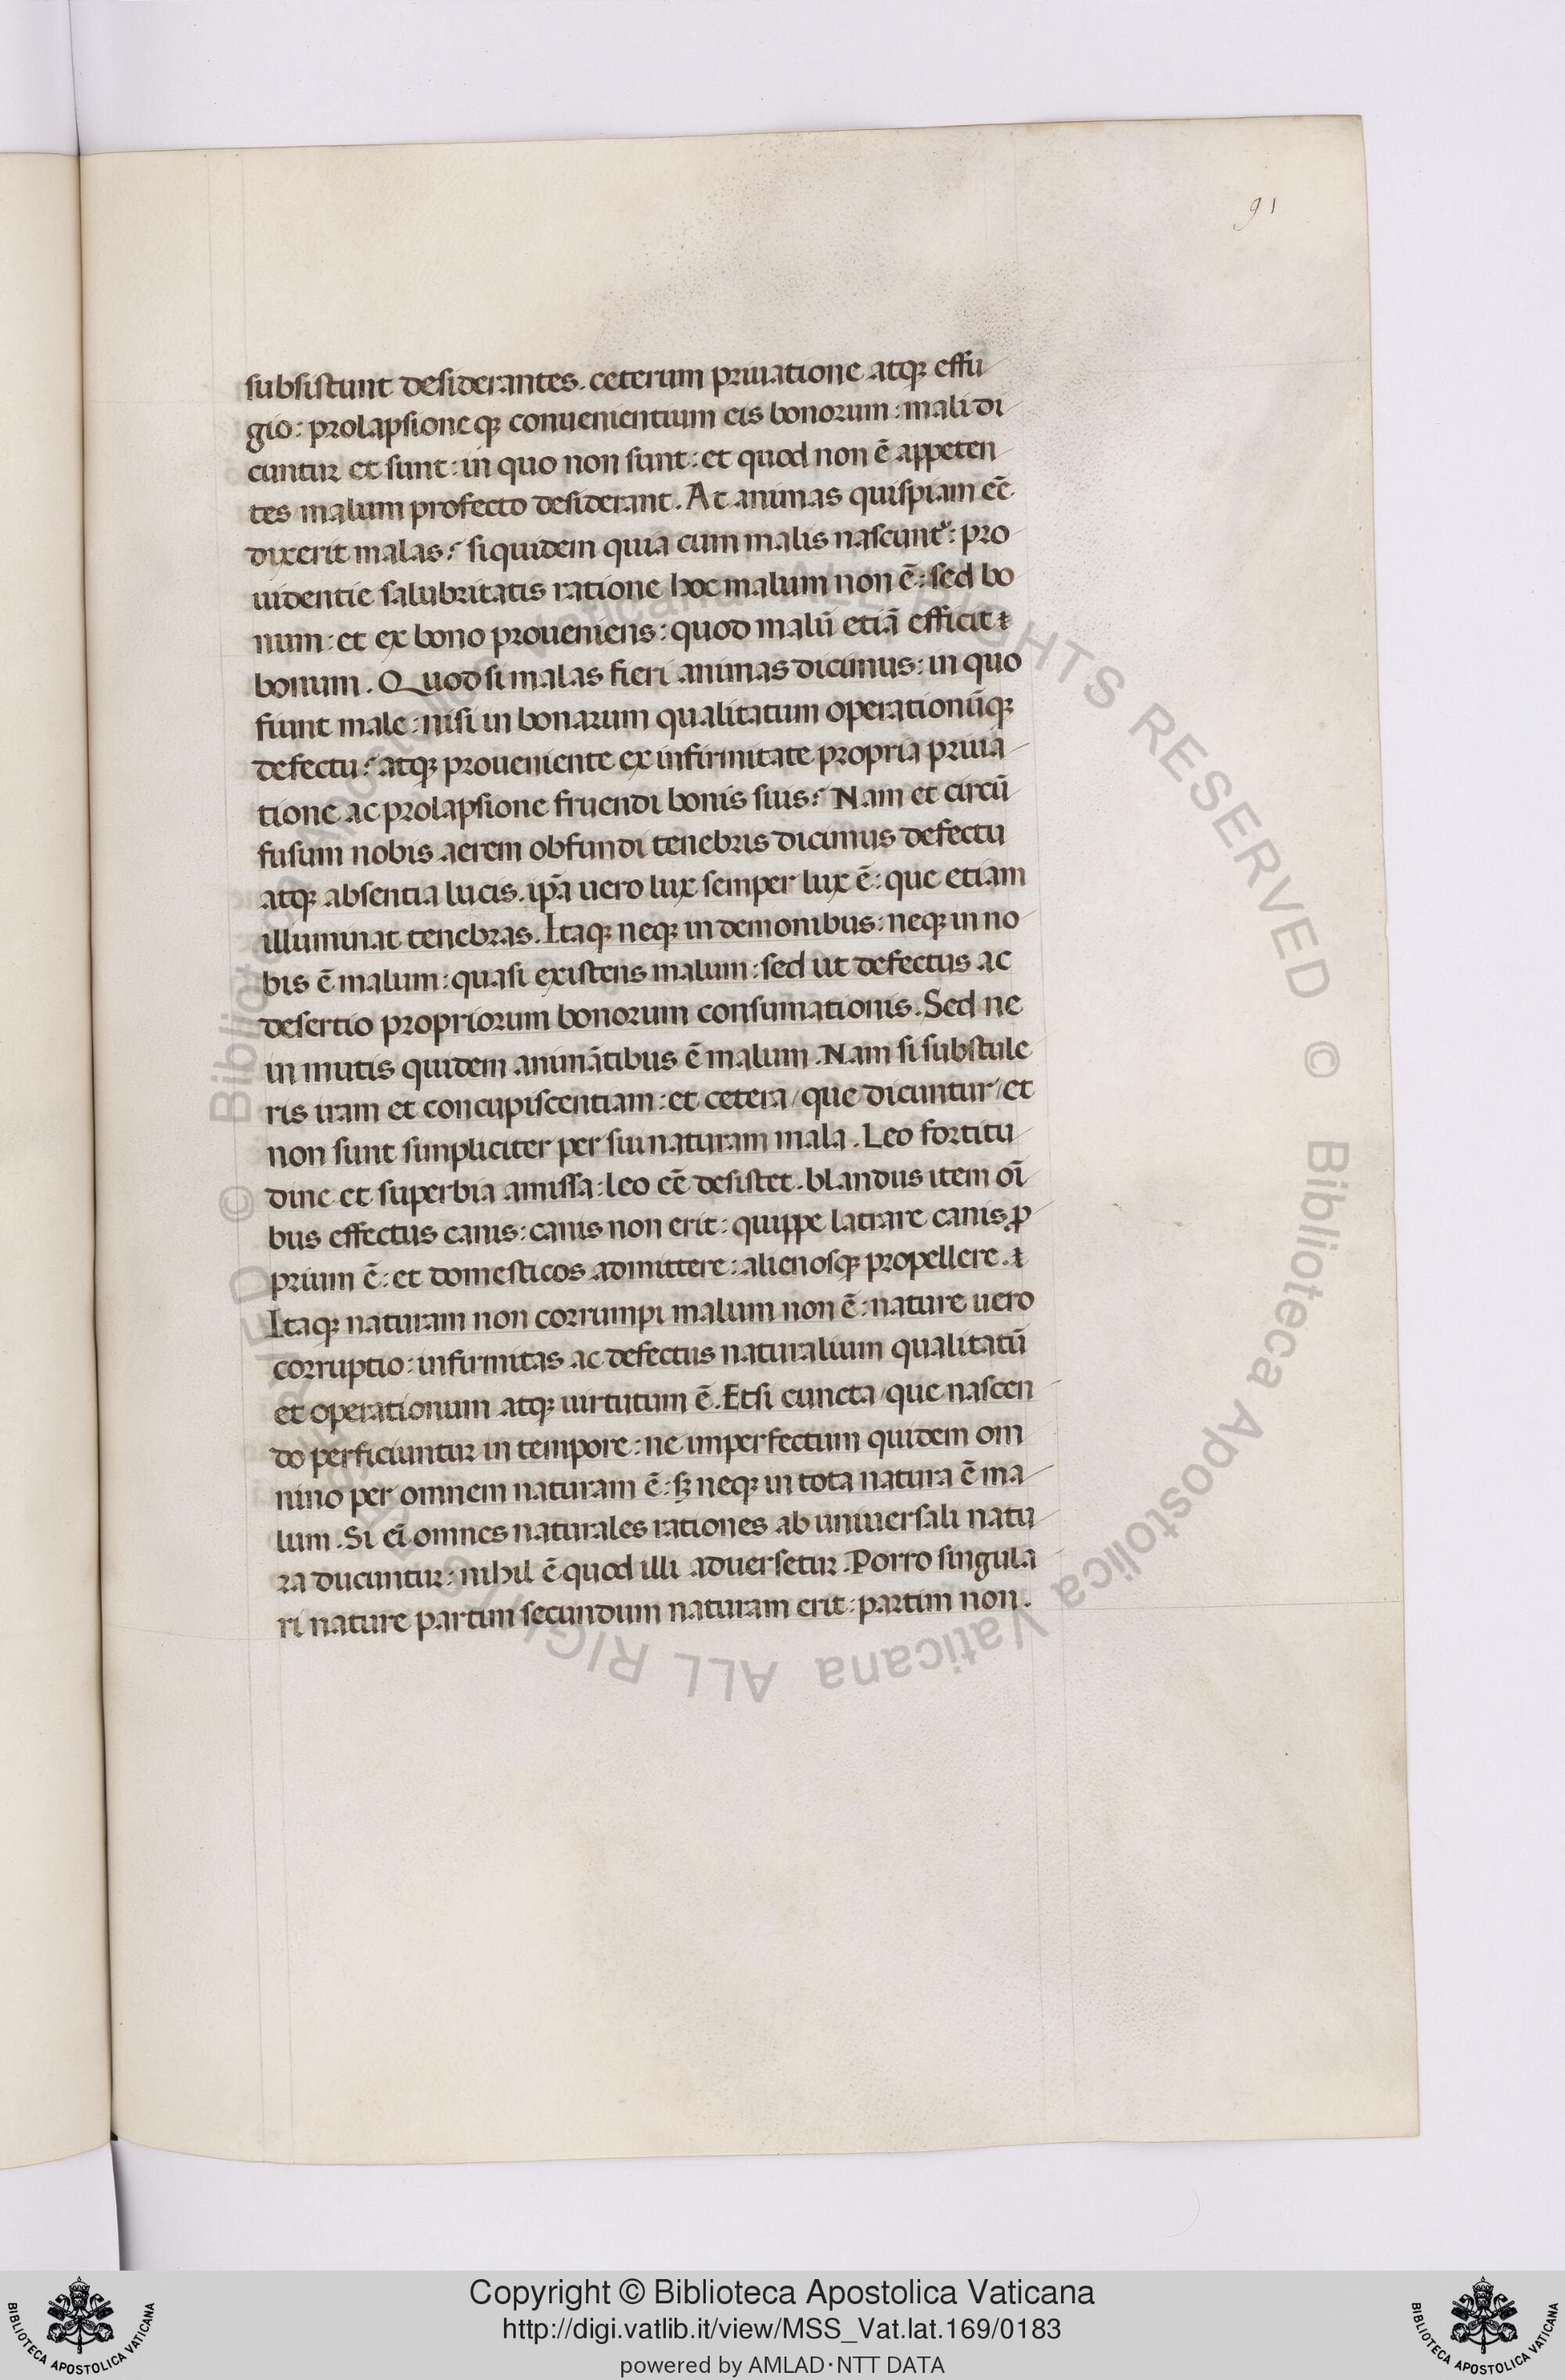 91
subsistunt desiderantes. ceterum priuatione atqꝫ effu
gio: prolapsioneqꝫ conuenientium eis bonorum: mali di
cuntur et sunt: in quo non sunt: et quod non ē appeten
tes malum profecto desiderant. At animas quispiam eē
dixerit malas? siquidem quia cum malis nascunt᷑: pro
uidentie salubritatis ratione hoc malum non ē: sed bo
num: et ex bono proueniens: quod malū etiā efficit
bonum. Quod si malas fieri animas dicimus: in quo
fiunt male: nisi in bonarum qualitatum operationūqꝫ
defectu? atqꝫ proueniente ex infirmitate propria priua
tione ac prolapsione fruendi bonis suis? Nam et circū
fusum nobis aerem obfundi tenebris dicimus defectu
atqꝫ absentia lucis. ip̄a uero lux semper lux ē: que etiam
illuminat tenebras. Itaqꝫ neqꝫ in demonibus: neqꝫ in no
bis ē malum: quasi existens malum: sed ut defectus ac
desertio propriorum bonorum consumationis. Sed ne
in mutis quidem animātibus ē malum. Nam si substule
ris iram et concupiscentiam: et cetera/ que dicuntur/ et
non sunt simpliciter per sui naturam mala. Leo fortitu
dine et superbia amissa: leo eē desistet. blandus item oī
bus effectus canis: canis non erit: quippe latrare canis ꝓ
prium ē: et domesticos admittere: alienosqꝫ propellere.
Itaqꝫ naturam non corrumpi malum non ē: nature uero
corruptio: infirmitas ac defectus naturalium qualitatū
et operationum atqꝫ uirtutum ē. Etsi cuncta/ que nascen
do perficiuntur in tempore: ne imperfectum quidem om
nino per omnem naturam ē: sꝫ neqꝫ in tota natura ē ma
lum. Si ei̅ omnes naturales rationes ab uniuersali natu
ra ducuntur: nihil ē quod illi aduersetur. Porro singula
ri nature partim secundum naturam erit: partim non.
© Biblioteca Apostolica Vaticana ALL RIGHTS RESERVED
© Biblioteca Apostolica Vaticana ALL RIGHTS RESERVED
Copyright © Biblioteca Apostolica Vaticana
http://digi.vatlib.it/view/MSS_Vat.lat.169/0183
powered by AMLAD·NTT DATA
BIBLIOTECA APOSTOLICA VATICANA
BIBLIOTECA APOSTOLICA VATICANA